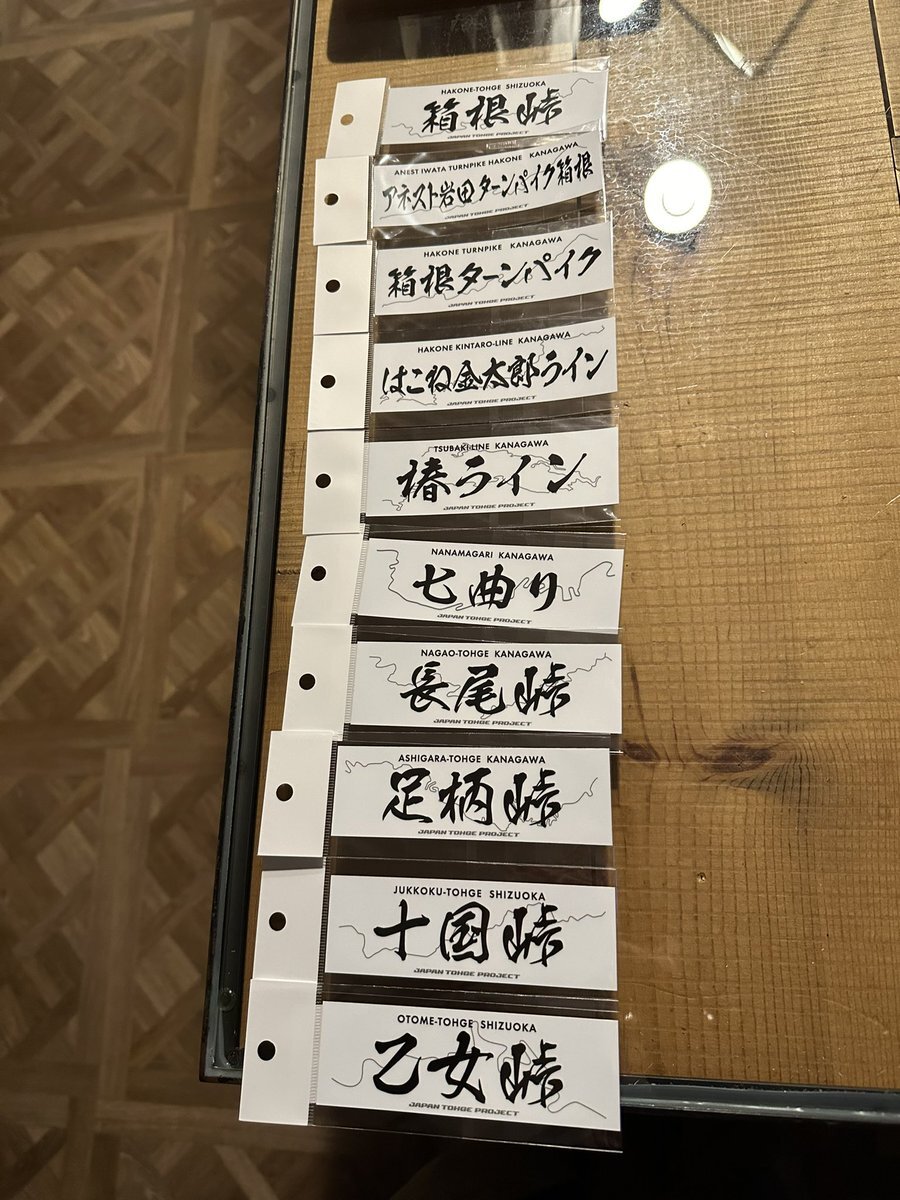 HAKONE-TOHGE SHIZUOKA
箱根峠
JAPAN TOHGE PROJECT
ANEST IWATA TURNPIKE HAKONE KANAGAWA
アネスト岩田ターンパイク箱根
JAPAN TOHGE PROJECT
HAKONE TURNPIKE KANAGAWA
箱根ターンパイク
JAPAN TOHGE PROJECT
HAKONE KINTARO-LINE KANAGAWA
はこね金太郎ライン
JAPAN TOHGE PROJECT
TSUBAKI-LINE KANAGAWA
椿ライン
JAPAN TOHGE PROJECT
NANAMAGARI KANAGAWA
七曲り
JAPAN TOHGE PROJECT
NAGAO-TOHGE KANAGAWA
長尾峠
JAPAN TOHGE PROJECT
ASHIGARA-TOHGE KANAGAWA
足柄峠
JAPAN TOHGE PROJECT
JUKKOKU-TOHGE SHIZUOKA
十国峠
JAPAN TOHGE PROJECT
OTOME-TOHGE SHIZUOKA
乙女峠
JAPAN TOHGE PROJECT